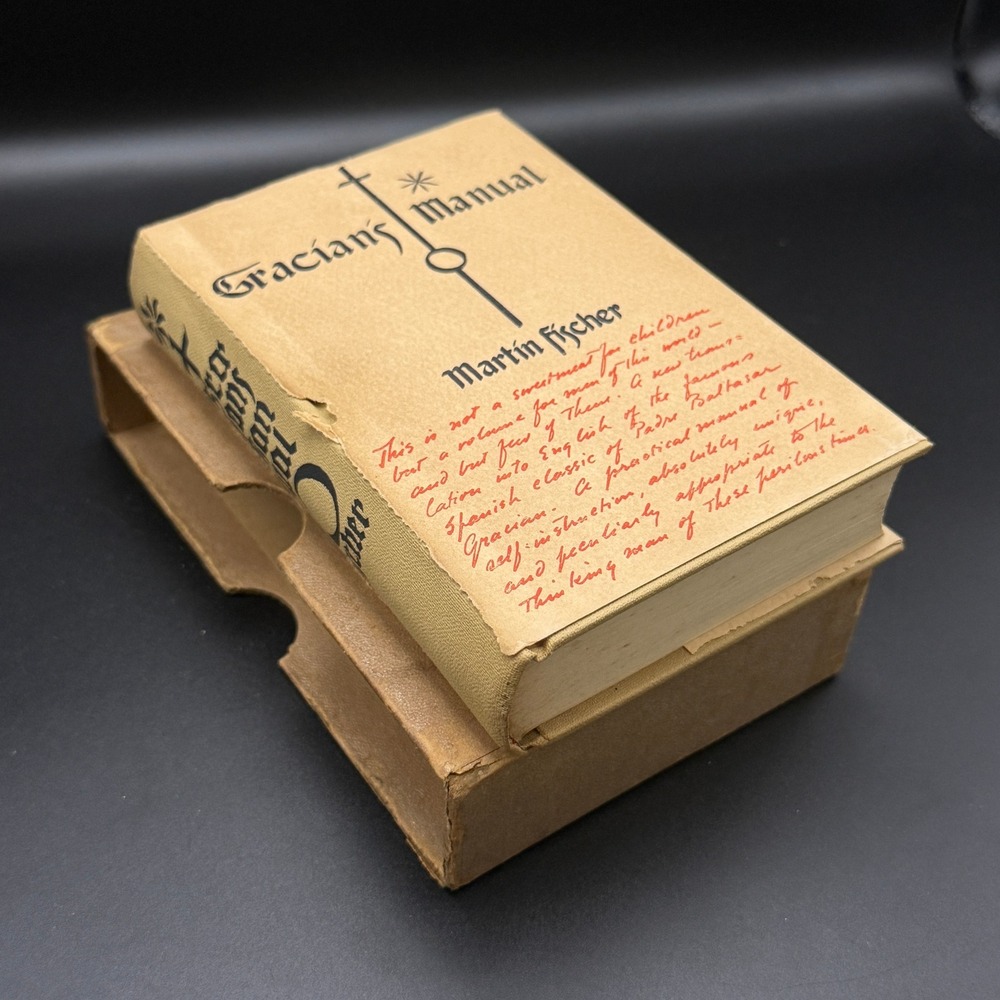 Gracian's Manual
Martin Fischer
This is not a sweetmeat for children
but a volume for men of this world —
and but few of these. A new trans=
lation into English of the famous
Spanish classic of Padre Baltasar
Gracian. A practical manual of
self-instruction, absolutely unique,
and peculiarly appropriate to the
thinking man of these perilous times.